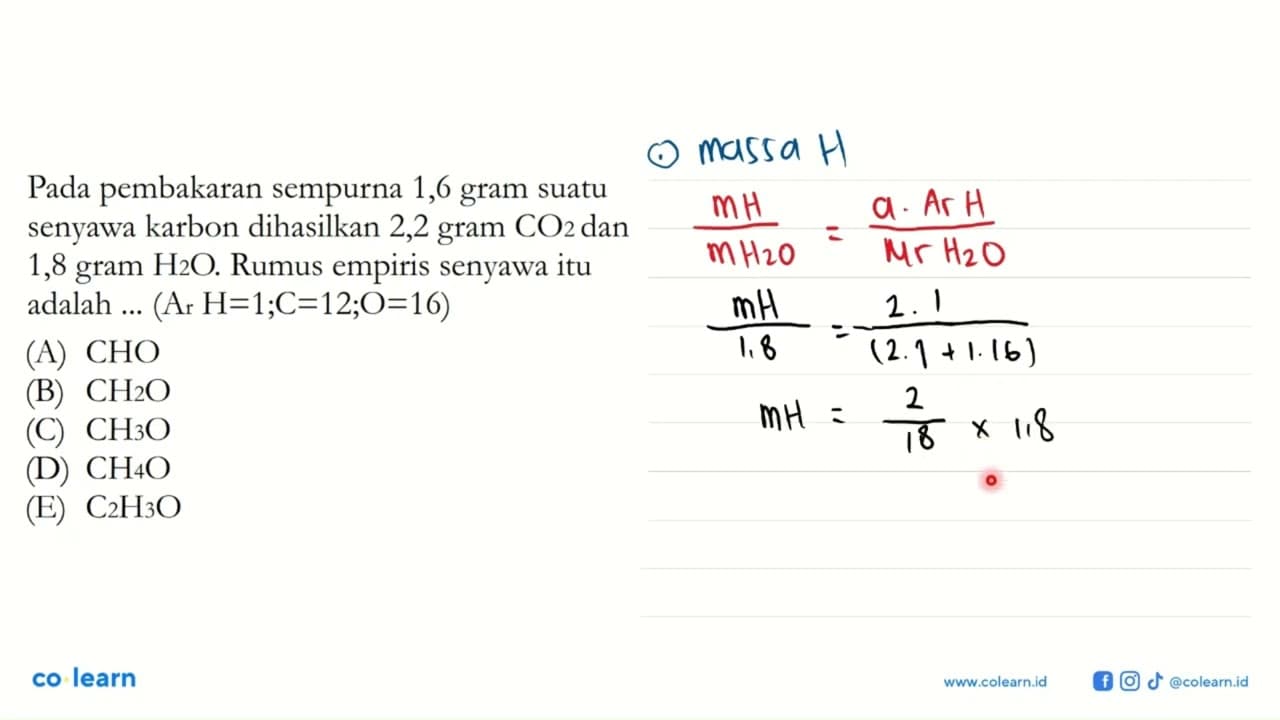 Pada pembakaran sempurna 1,6 gram suatu
senyawa karbon dihasilkan 2,2 gram CO2 dan
1,8 gram H2O. Rumus empiris senyawa itu
adalah ... (Ar H=1;C=12;O=16)
(A) CHO
(B) CH2O
(C) CH3O
(D) CH4O
(E) C2H3O
⊙ massa H
mH / mH2O = a. Ar H / Mr H2O
mH / 1,8 = 2.1 / (2.1 + 1.16)
mH = 2 / 18 x 1,8
co·learn
www.colearn.id @colearn.id